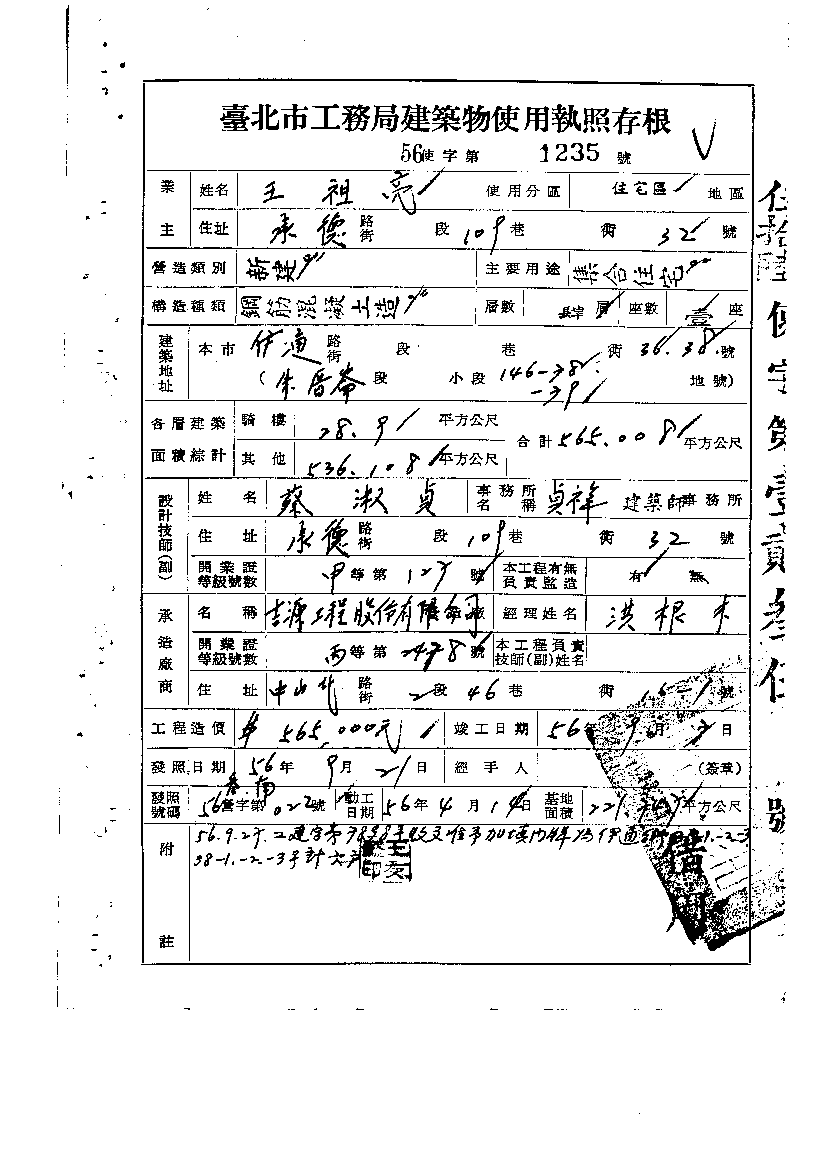 臺北市工務局建築物使用執照存根
56使字第 1235 號
業主 姓名 王祖亮 使用分區 住宅區 地區
住址 承德 路街 段 109 巷 衖 32 號
營造類別 新建 主要用途 集合住宅
構造種類 鋼筋混凝土造 層數 肆層 座數 壹座
建築地址 本市 伊通 路街 段 巷 衖 36.38. 號
(朱厝崙 段 小段 146-38. 地號)
-39
各層建築面積綜計 騎樓 28.9 平方公尺 合計 565.008 平方公尺
其他 536.108 平方公尺
設計技師(副) 姓名 蔡淑貞 事務所名稱 貞祥 建築師事務所
住址 承德 路街 段 109 巷 衖 32 號
開業證等級號數 甲等第 127 號 本工程有無負責監造 有 無
承造廠商 名稱 吉源工程股份有限公司 經理姓名 洪根木
開業證等級號數 丙等第 號 本工程負責技師(副)姓名
住址 中山北 路街 2 段 46 巷 衖 號
工程造價 $ 565,000元 竣工日期 56年 9月 日
發照日期 56年 9月 21日 經手人 (簽章)
發照號碼 56營字第 022 號 動工日期 56年 4月 14日 基地面積 平方公尺
附註 56.9.27.
38-1.-2.-3號計六戶
借閱
伍拾陸使字第壹貳叁伍號